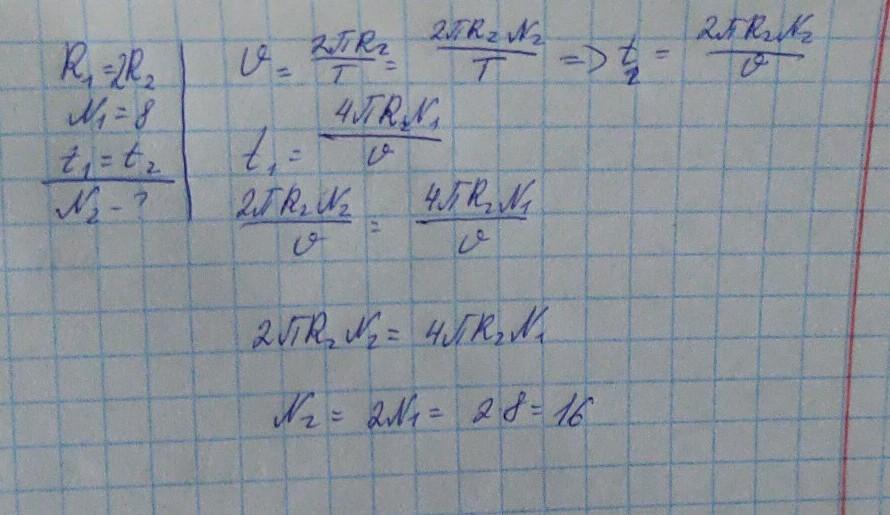 R₁=2R₂
N₁=8
t₁=t₂
N₂-?
υ = 2πR₂/T = 2πR₂N₂/T => t₂ = 2πR₂N₂/υ
t₁ = 4πR₂N₁/υ
2πR₂N₂/υ = 4πR₂N₁/υ
2πR₂N₂ = 4πR₂N₁
N₂ = 2N₁ = 2·8=16